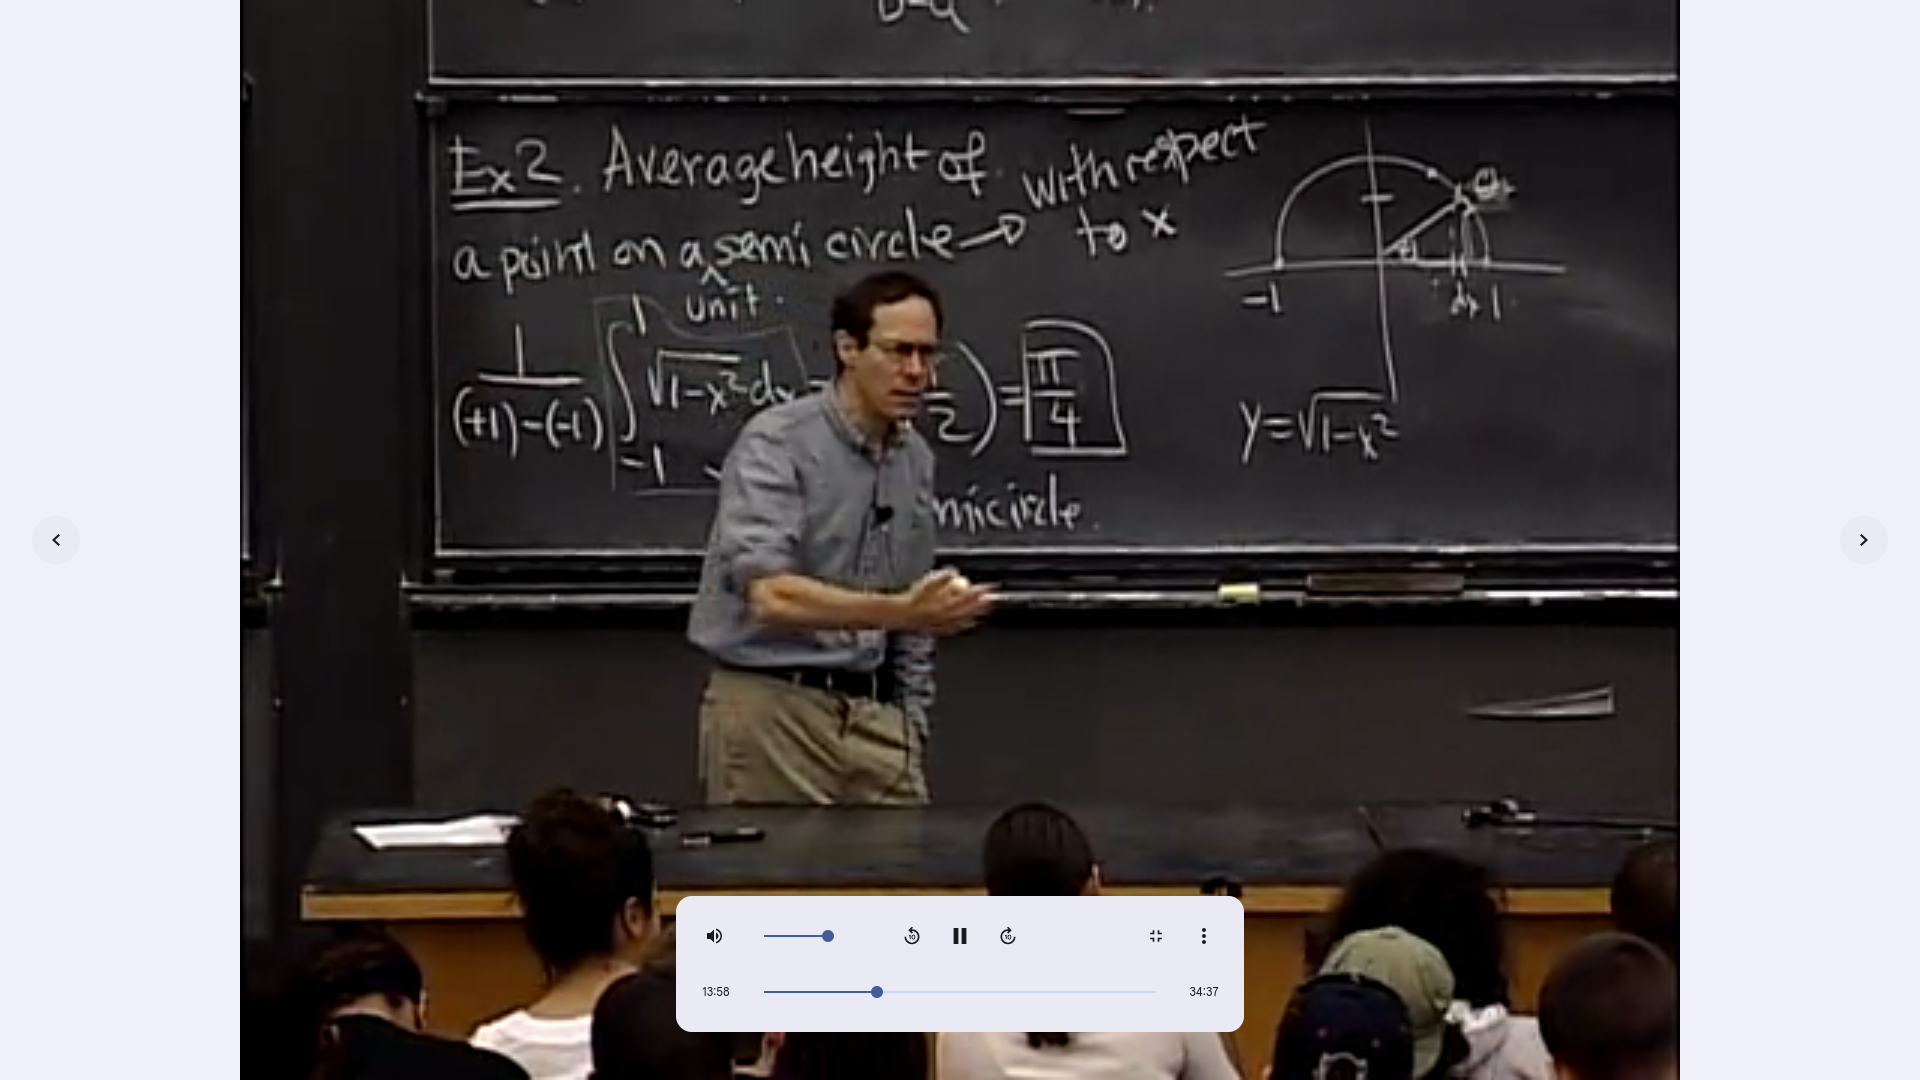 b-a
Ex 2. Average height of
a point on a semi circle → with respect to x
unit
1/((+1)-(-1)) ∫_{-1}^{1} √(1-x²) dx = 2) = π/4
micircle.
θ
-1 dx 1
y=√(1-x²)
10 10
13:58 34:37